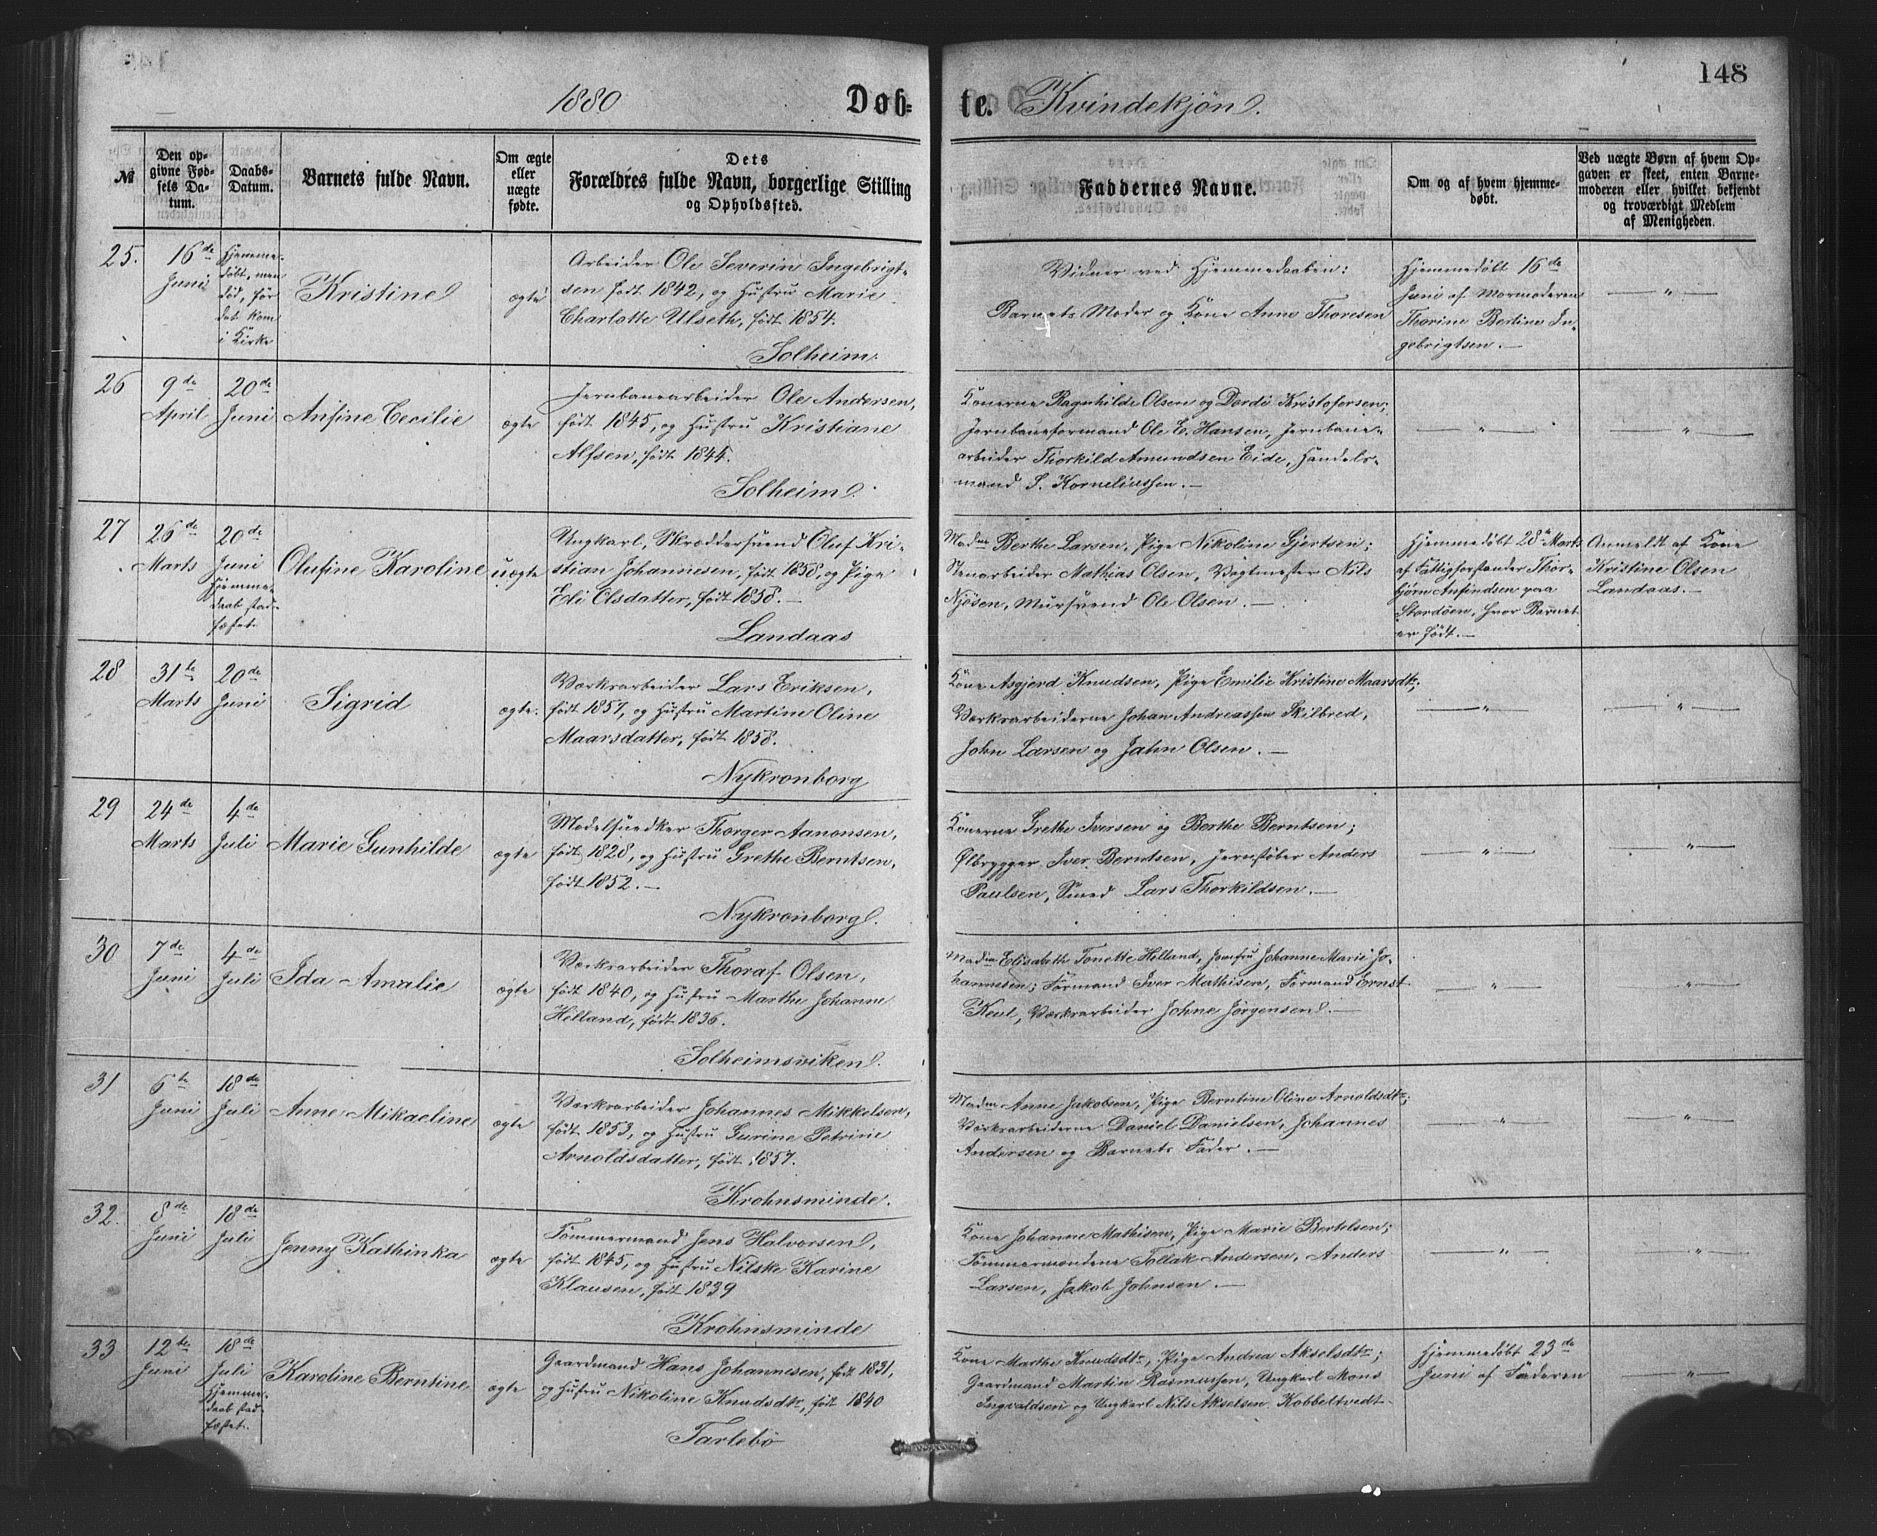 148
1880 Døb- te. Kvindekjøn.
№
Den op-
givne Fød-
sels Da-
tum.
Daabs-
Datum.
Barnets fulde Navn.
Om ægte
eller
uægte
fødte.
Dets
Forældres fulde Navn, borgerlige Stilling
og Opholdssted.
Faddernes Navne.
Om og af hvem hjemme-
døbt.
Ved uægte Børn af hvem Op-
gaven er skeet, enten Barne-
moderen eller hvilket bekjendt
og troværdigt Medlem
af Menigheden.
25.
16de
Juni
Hjemme-
døbt, men
død, før
det kom
i Kirke
Kristine
ægte
Arbeider Ole Severin Ingebrigt-
sen født 1842, og Hustru Marie
Charlotte Ulseth, født 1854.
Solheim.
Vidner ved Hjemmedaaben:
Barnets Moder og Kone Anne Thoresen
Hjemmedøbt 16de
Juni af Mormoderen
Thorine Bertine In-
gebrigtsen. —
— " —
26
9de
April
20de
Juni
Anfine Cecilie
ægte
Jernbanearbeider Ole Andersen,
født 1845, og Hustru Kristiane
Alfsen, født 1844.
Solheim.
Konerne Ragnhilde Olsen og Dordi Kristofersen;
Jernbaneformand Ole E. Hansen, Jernbane-
arbeider Thorkild Amundsen Eide, Handels-
mand S. Korneliussen. —
— " —
— " —
27
26de
Marts
20de
Juni
Hjemme-
daab stad-
fæstet.
Olufine Karoline
uægte
Ungkarl, Skræddersvend Oluf Kri-
stian Johannesen, født 1858, og Pige
Eli Olsdatter, født 1858. —
Landaas
Madm Berthe Larsen, Pige Nikoline Gjertsen;
Stenarbeider Mathias Olsen, Vagtmester Nils
Njøsen, Mursvend Ole Olsen. —
Hjemmedøbt 28de Marts
af Fattigforstander Thor-
bjørn Anfindsen paa
Stordøen, hvor Barnet
er født. —
Anmeldt af Kone
Kristine Olsen
Landaas. —
28
31te
Marts
20de
Juni
Sigrid
ægte.
Værkrarbeider Lars Eriksen,
født 1857, og Hustru Martine Oline
Maarsdatter, født 1858.
Nykronborg
Kone Asgjerd Knudsen, Pige Emilie Kristine Maarsdtr;
Værkrarbeiderne Johan Andreassen Skilbred,
John Larsen og Jahn Olsen. —
— " —
— " —
29
24de
Marts
4de
Juli
Marie Gunhilde
ægte
Modelsnedker Thorger Aanonsen,
født 1828, og Hustru Grethe Berntsen,
født 1852. —
Nykronborg.
Konerne Grethe Iversen og Berthe Berntsen;
Ølbrygger Iver Berntsen, Jernstøber Anders
Paulsen, Smed Lars Thorkildsen. —
— " —
— " —
30
7de
Juni
4de
Juli
Ida Amalie
ægte
Værkrarbeider Thoraf Olsen,
født 1840, og Hustru Marthe Johanne
Helland, født 1836.
Solheimsviken.
Madm Elisabeth Tonette Helland, Jomfru Johanne Marie Jo-
hannesen; Formand Iver Mathisen, Formand Ernst
Keul, Værkrarbeider Johne Jørgensen. —
— " —
— " —
31
6te
Juni
18de
Juli
Anne Mikaeline
ægte
Værkrarbeider Johannes Mikkelsen,
født 1853, og Hustru Gurine Petrine
Arnoldsdatter, født 1857.
Krohnsminde.
Madm Anne Jakobsen, Pige Berntine Oline Arnoldsdtr;
Værkrarbeiderne Daniel Danielsen, Johannes
Andersen og Barnets Fader. —
— " —
— " —
32.
8de
Juni
18de
Juli
Jenny Kathinka
ægte
Tømmermand Jens Halvorsen,
født 1845, og Hustru Nilske Karine
Klausen, født 1839
Krohnsminde
Kone Johanne Mathisen, Pige Marie Bertelsen;
Tømmermændene Tollak Andersen, Anders
Larsen, Jakob Johnsen. —
— " —
— " —
33
12te
Juni
18de
Juli
Hjemme-
daab stad-
fæstet.
Karoline Berntine
ægte
Gaardmand Hans Johannesen, født 1831,
og Hustru Nikoline Knudsdtr, født 1840
Tarlebø
Kone Marthe Knudsdtr, Pige Andrea Akselsdtr;
Gaardmand Martin Rasmussen, Ungkarl Mons
Ingvaldsen og Ungkarl Nils Akselsen Kobbeltvedt.
Hjemmedøbt 23de
Juni af Faderen
— " —